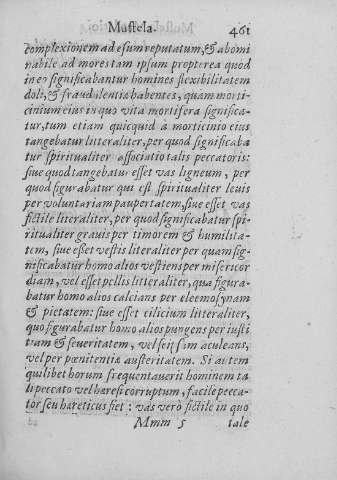 Mustela. 461
complexionem ad esum reputatum, & abomi
nabile ad mores tam ipsum propterea quod
in eo significabantur homines flexibilitatem
doli, & fraudulentia habentes, quam morti-
cinium eius in quo vita mortifera significa-
tur, tum etiam quicquid à morticinio eius
tangebatur litteraliter, per quod significaba
tur spiritualiter associatio talis peccatoris:
siue quod tangebatur esset vas ligneum, per
quod figurabatur qui est spiritualiter leuis
per voluntariam paupertatem, siue esset vas
fictile literaliter, per quod significabatur spi-
ritualiter grauis per timorem & humilita-
tem, siue esset vestis literaliter per quam sig-
nificabatur homo alios vestiens per misericor
diam, vel esset pellis litteraliter, qua figura-
batur homo alios calcians per eleemosynam
& pietatem: siue esset cilicium litteraliter,
quo figurabatur homo alios pungens per iusti
tiam & seueritatem, vel seipsum aculeans,
vel per pœnitentiæ austeritatem. Si autem
quilibet horum frequentauerit hominem ta
li peccato vel hæresi corruptum, facile pecca-
tor seu hæreticus fiet: vas verò fictile in quo
Mmm 5 tale